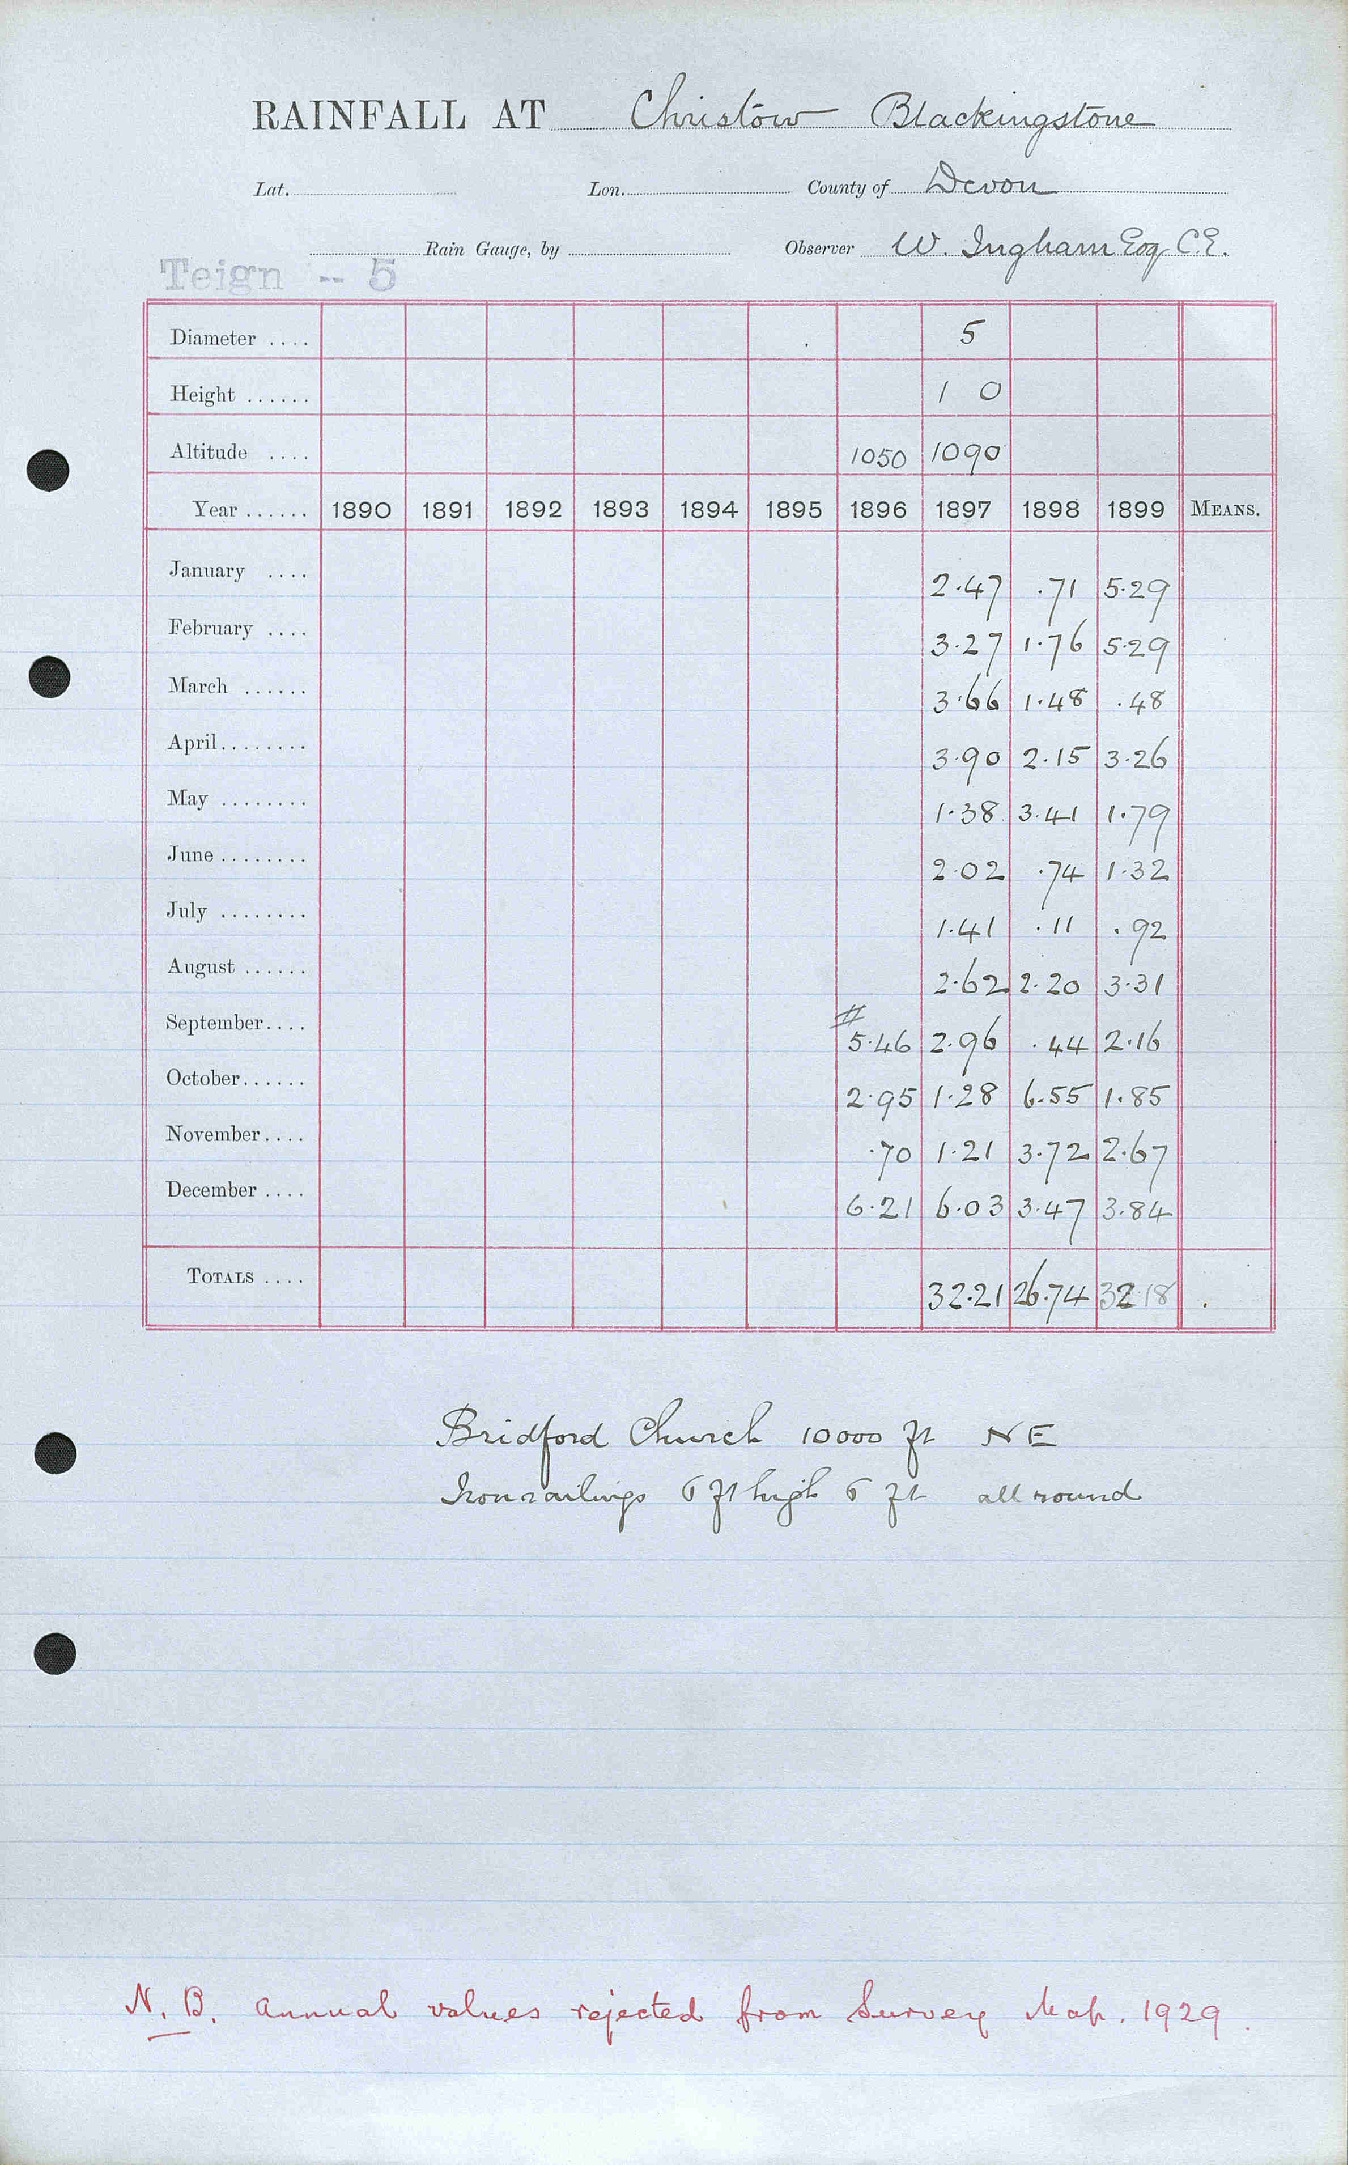 RAINFALL AT Christow Blackingstone
Lat. Lon. County of Devon
Rain Gauge, by Observer W. Ingham Esq C.E.
Teign -- 5
Diameter .... 5
Height ...... 1 0
Altitude .... 1050 1090
Year ...... 1890 1891 1892 1893 1894 1895 1896 1897 1898 1899 MEANS.
January .... 2.47 .71 5.29
February .... 3.27 1.76 5.29
March ...... 3.66 1.48 .48
April........ 3.90 2.15 3.26
May ........ 1.38 3.41 1.79
June ........ 2.02 .74 1.32
July ........ 1.41 .11 .92
August ...... 2.62 2.20 3.31
September.... # 5.46 2.96 .44 2.16
October...... 2.95 1.28 6.55 1.85
November.... .70 1.21 3.72 2.67
December .... 6.21 6.03 3.47 3.84
TOTALS .... 32.21 26.74 32.18
Bridford Church 10000 ft NE
Iron railings 6 ft high 6 ft all round
N.B. Annual values rejected from Survey Map. 1929.